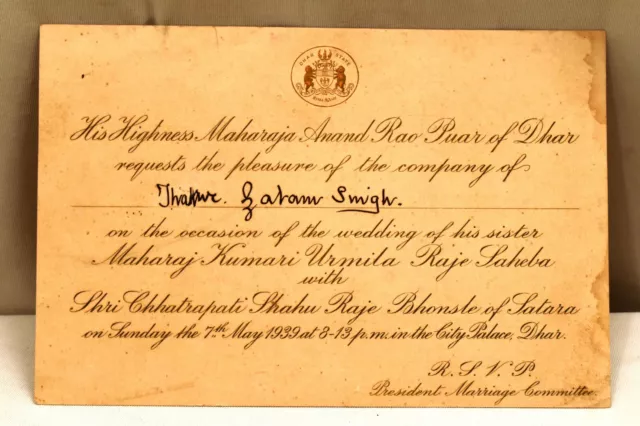 DHAR STATE
His Highness Maharaja Anand Rao Puar of Dhar
requests the pleasure of the company of
Thakur Zalam Singh.
on the occasion of the wedding of his sister
Maharaj Kumari Urmila Raje Saheba
with
Shri Chhatrapati Shahu Raje Bhonsle of Satara
on Sunday the 7th May 1939 at 8-13 p.m. in the City Palace, Dhar.
R. S. V. P.
President Marriage Committee.